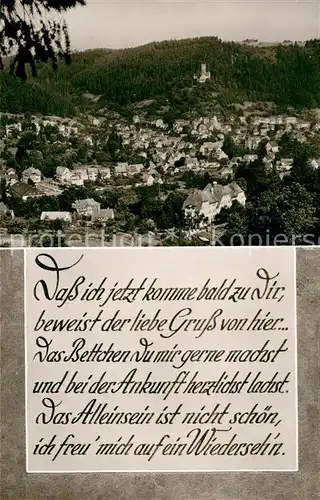 Daß ich jetzt komme bald zu Dir,
beweist der liebe Gruß von hier...
Das Bettchen Du mir gerne machst
und bei der Ankunft herzlichst lachst.
Das Alleinsein ist nicht schön,
ich freu' mich auf ein Wiederseh'n.